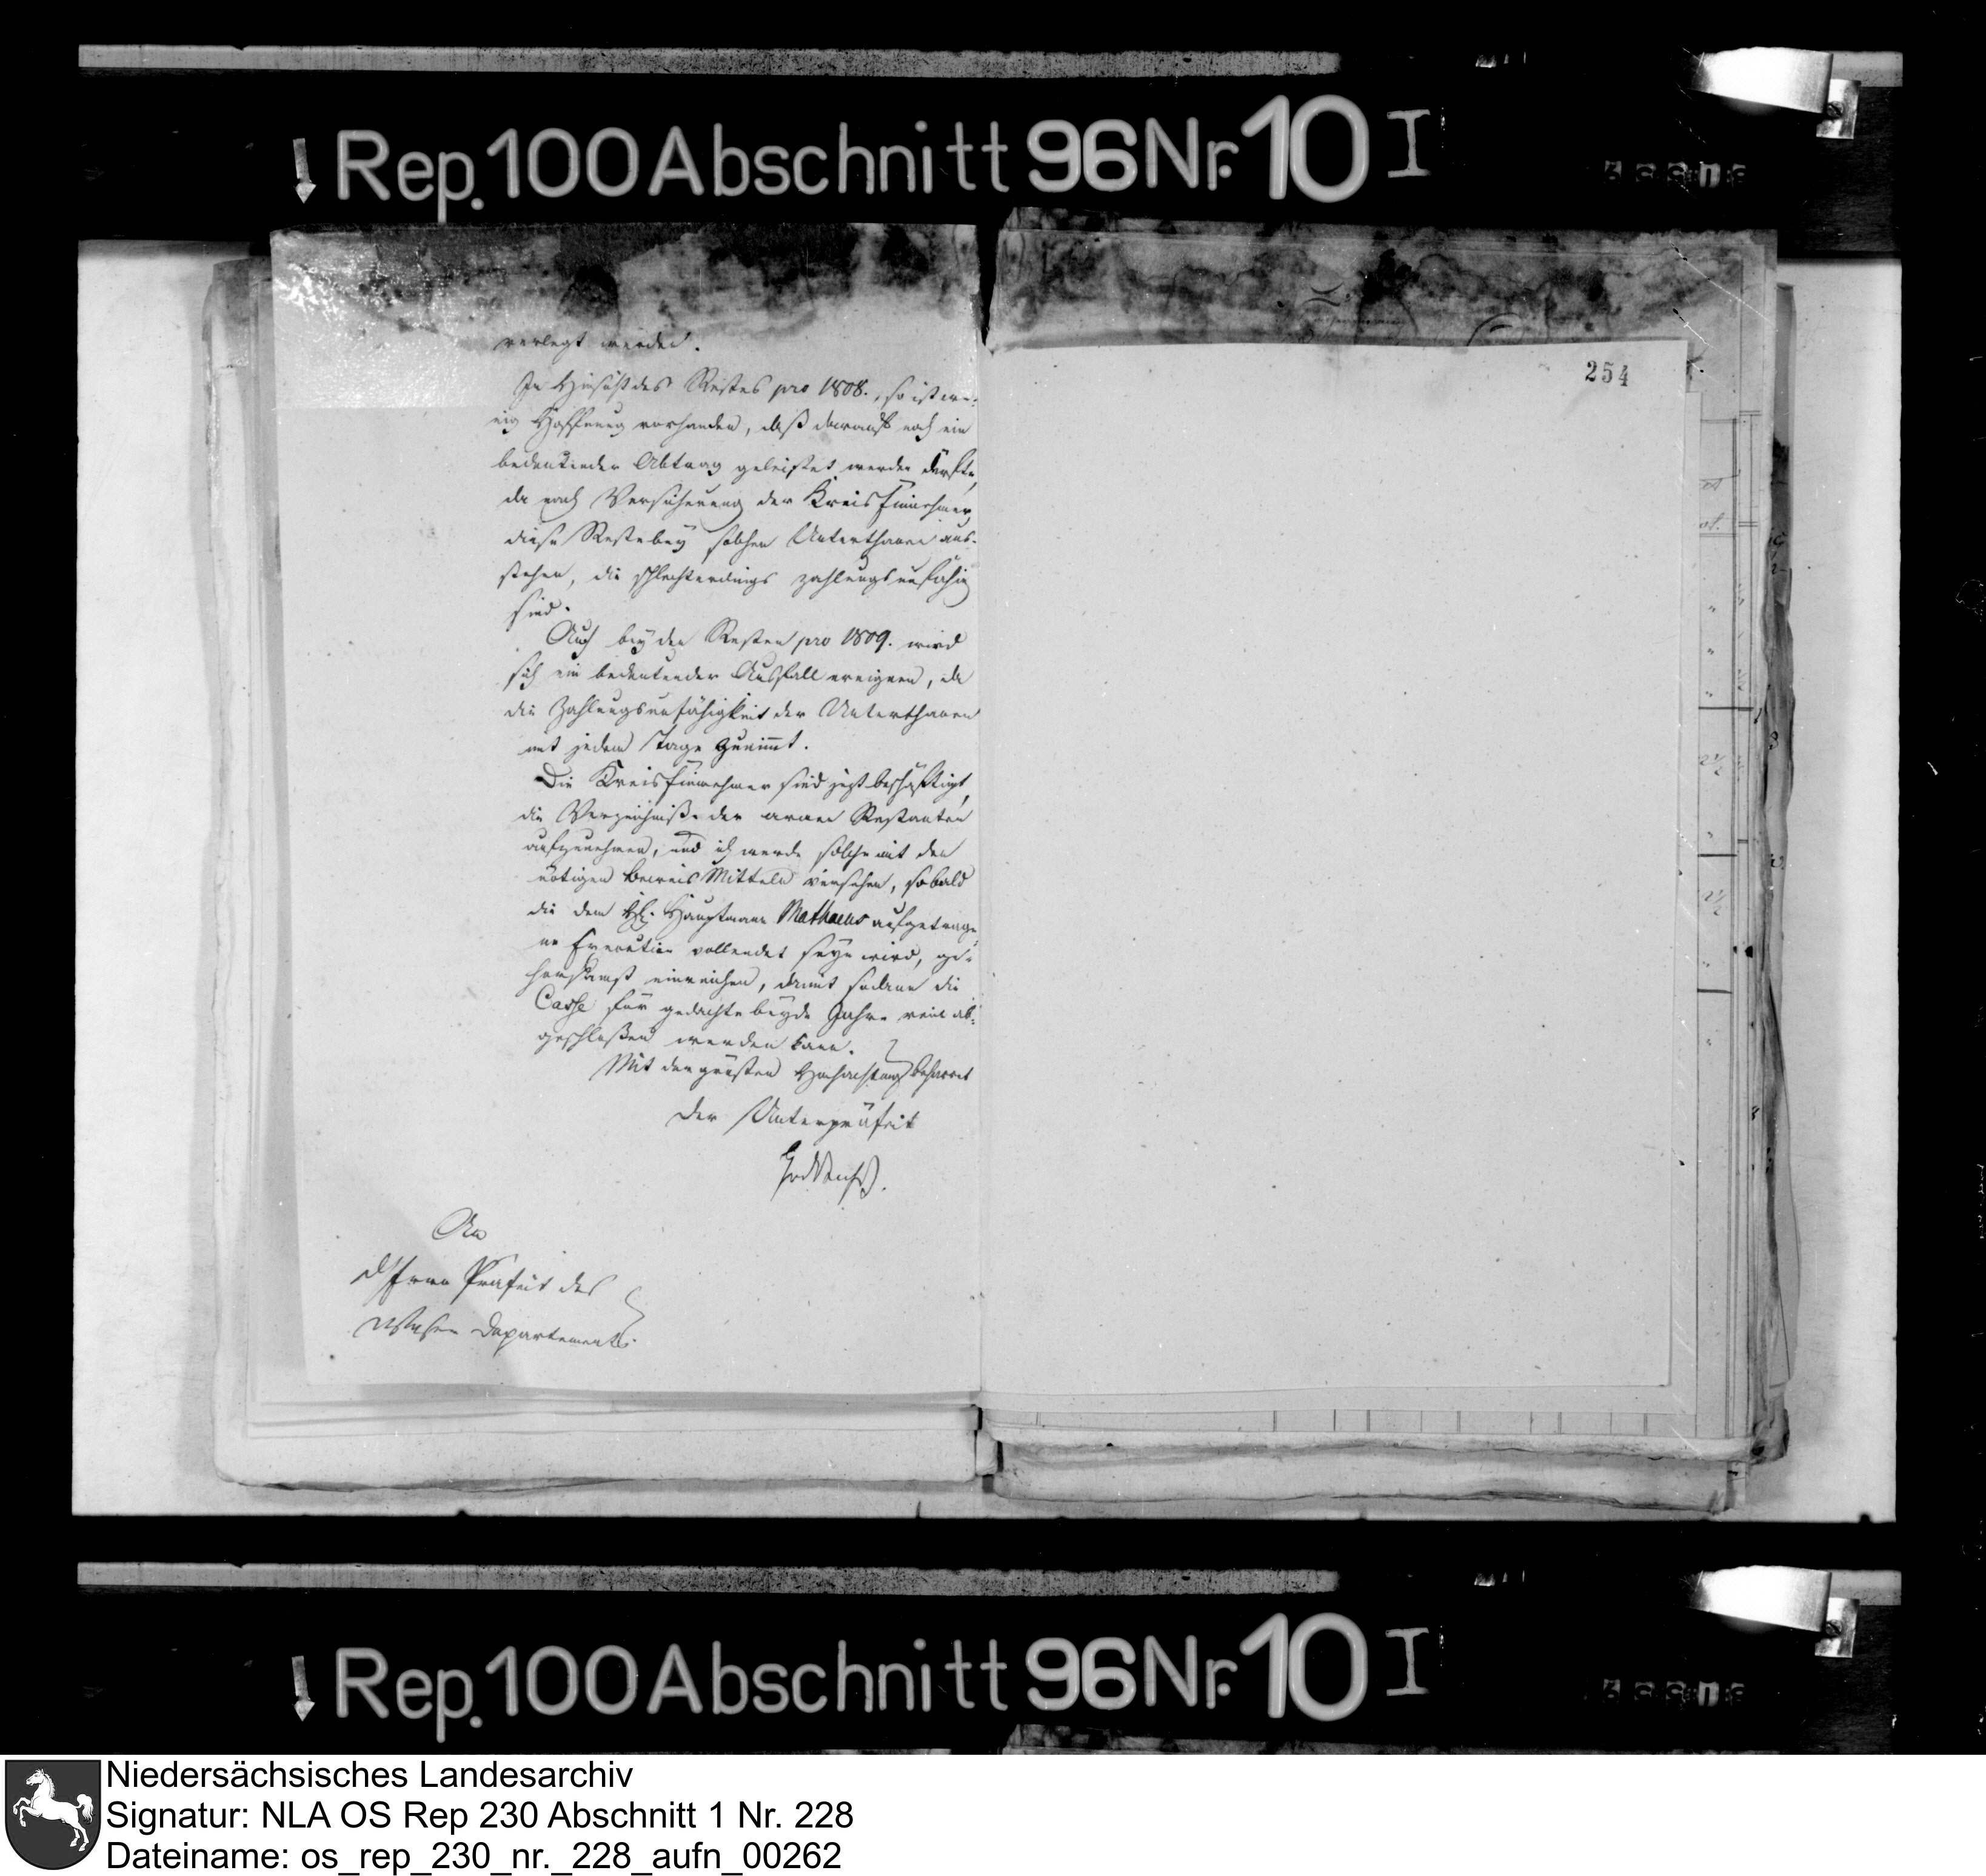 Rep. 100 Abschnitt 96 Nr. 10 I
verlegt werden.
In Hinsicht des Restes pro 1808., so ist we-
nig Hoffnung vorhanden, daß darauf noch ein
bedeutender Abtrag geleistet werden dürfte,
da nach Versicherung der Kreis Einnehmer
diese Reste bey solchen Unterthanen aus-
stehen, die schlechterdings zahlungsunfähig
sind.
Auch bey den Resten pro 1809. wird
sich ein bedeutender Ausfall ereignen, da
die Zahlungsunfähigkeit der Unterthanen
mit jedem Tage zunimmt.
Die Kreis Einnehmer sind jezt beschäftigt,
die Verzeichniße der armen Restanten
aufzunehmen, und ich werde solche mit den
nötigen Beweis Mitteln versehen, sobald
die dem H. Hauptmann Mathaeus aufgetrage-
ne Execution vollendet seyn wird, ge-
horsamst einreichen, damit sodann die
Casse für gedachte beyde Jahre rein ab-
geschloßen werden kann.
Mit der grösten Hochachtung beharret
der Unterpräfect
An
d Herrn Präfect des
Weser Departements.
254
Rep. 100 Abschnitt 96 Nr. 10 I
Niedersächsisches Landesarchiv
Signatur: NLA OS Rep 230 Abschnitt 1 Nr. 228
Dateiname: os_rep_230_nr._228_aufn_00262